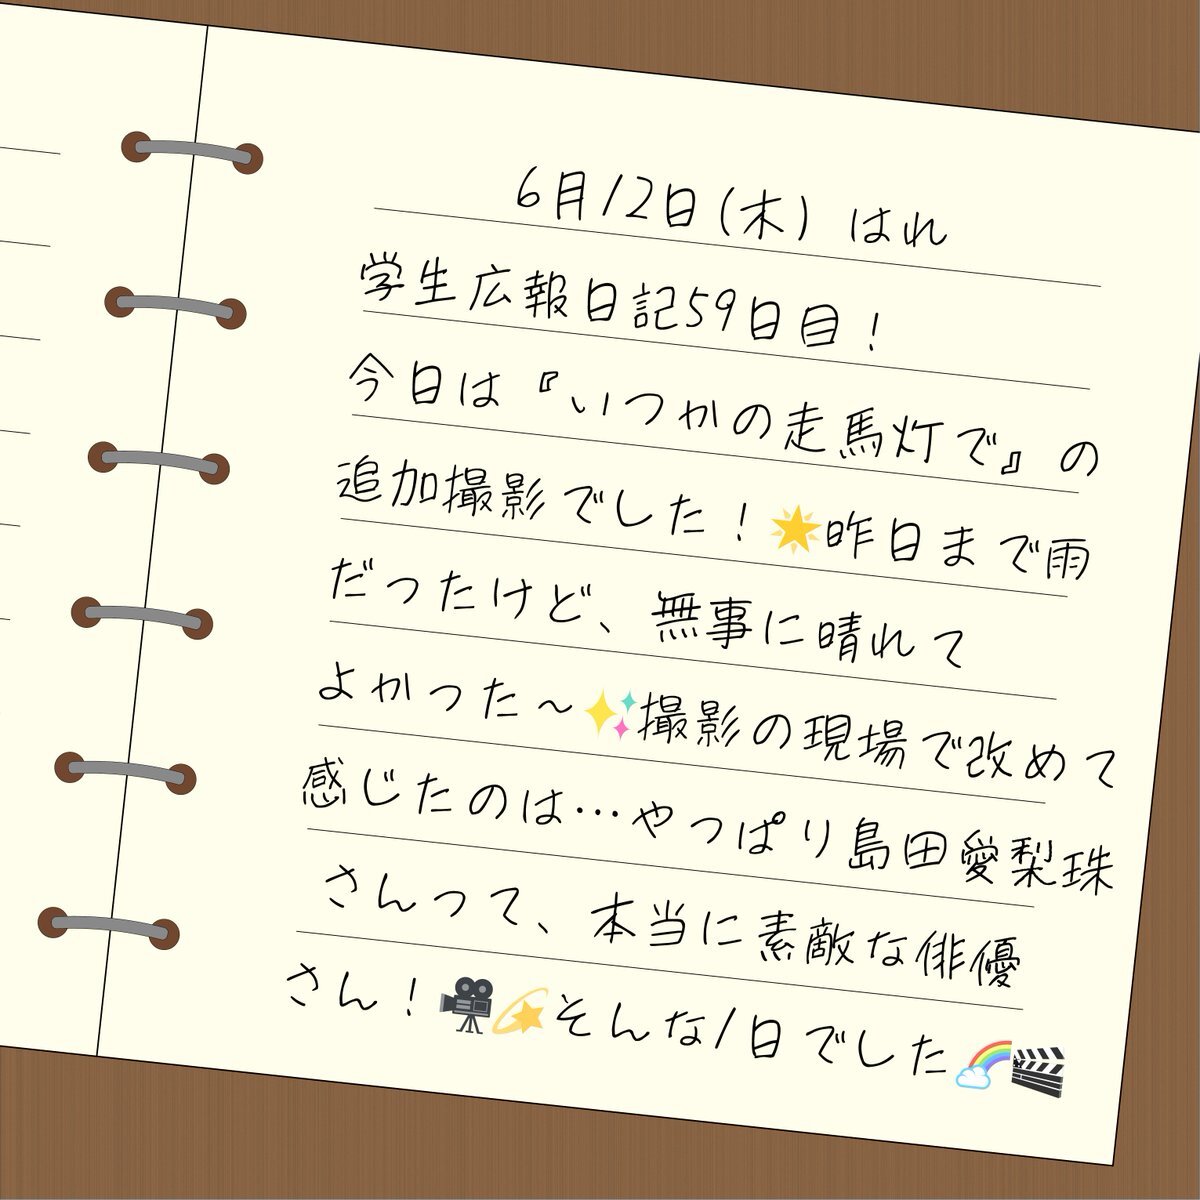 6月12日(木) はれ
学生広報日記59日目！
今日は『いつかの走馬灯で』の
追加撮影でした！🌟昨日まで雨
だったけど、無事に晴れて
よかった～✨撮影の現場で改めて
感じたのは…やっぱり島田愛梨珠
さんって、本当に素敵な俳優
さん！🎥💫そんな1日でした🌈🎬